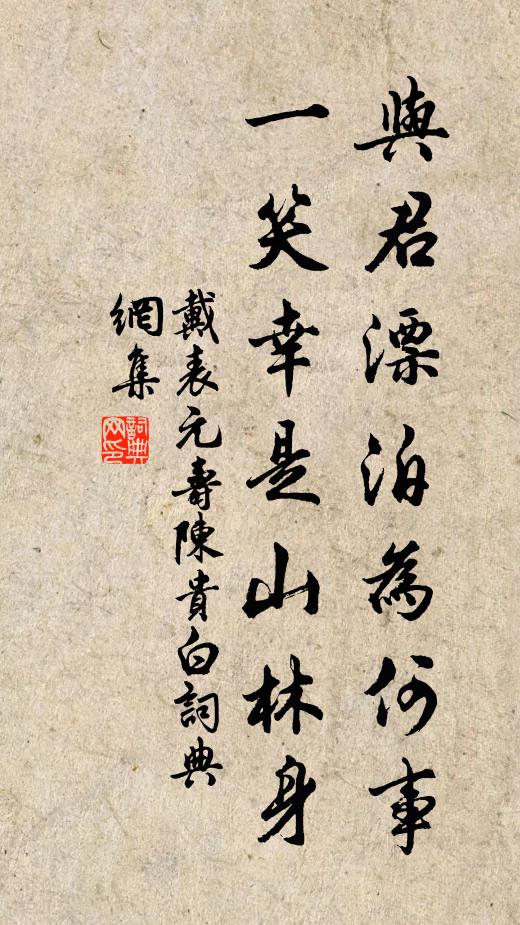 與君漂泊為何事
一笑幸是山林身
戴表元壽陳貴白詞典
網集
詞典网印